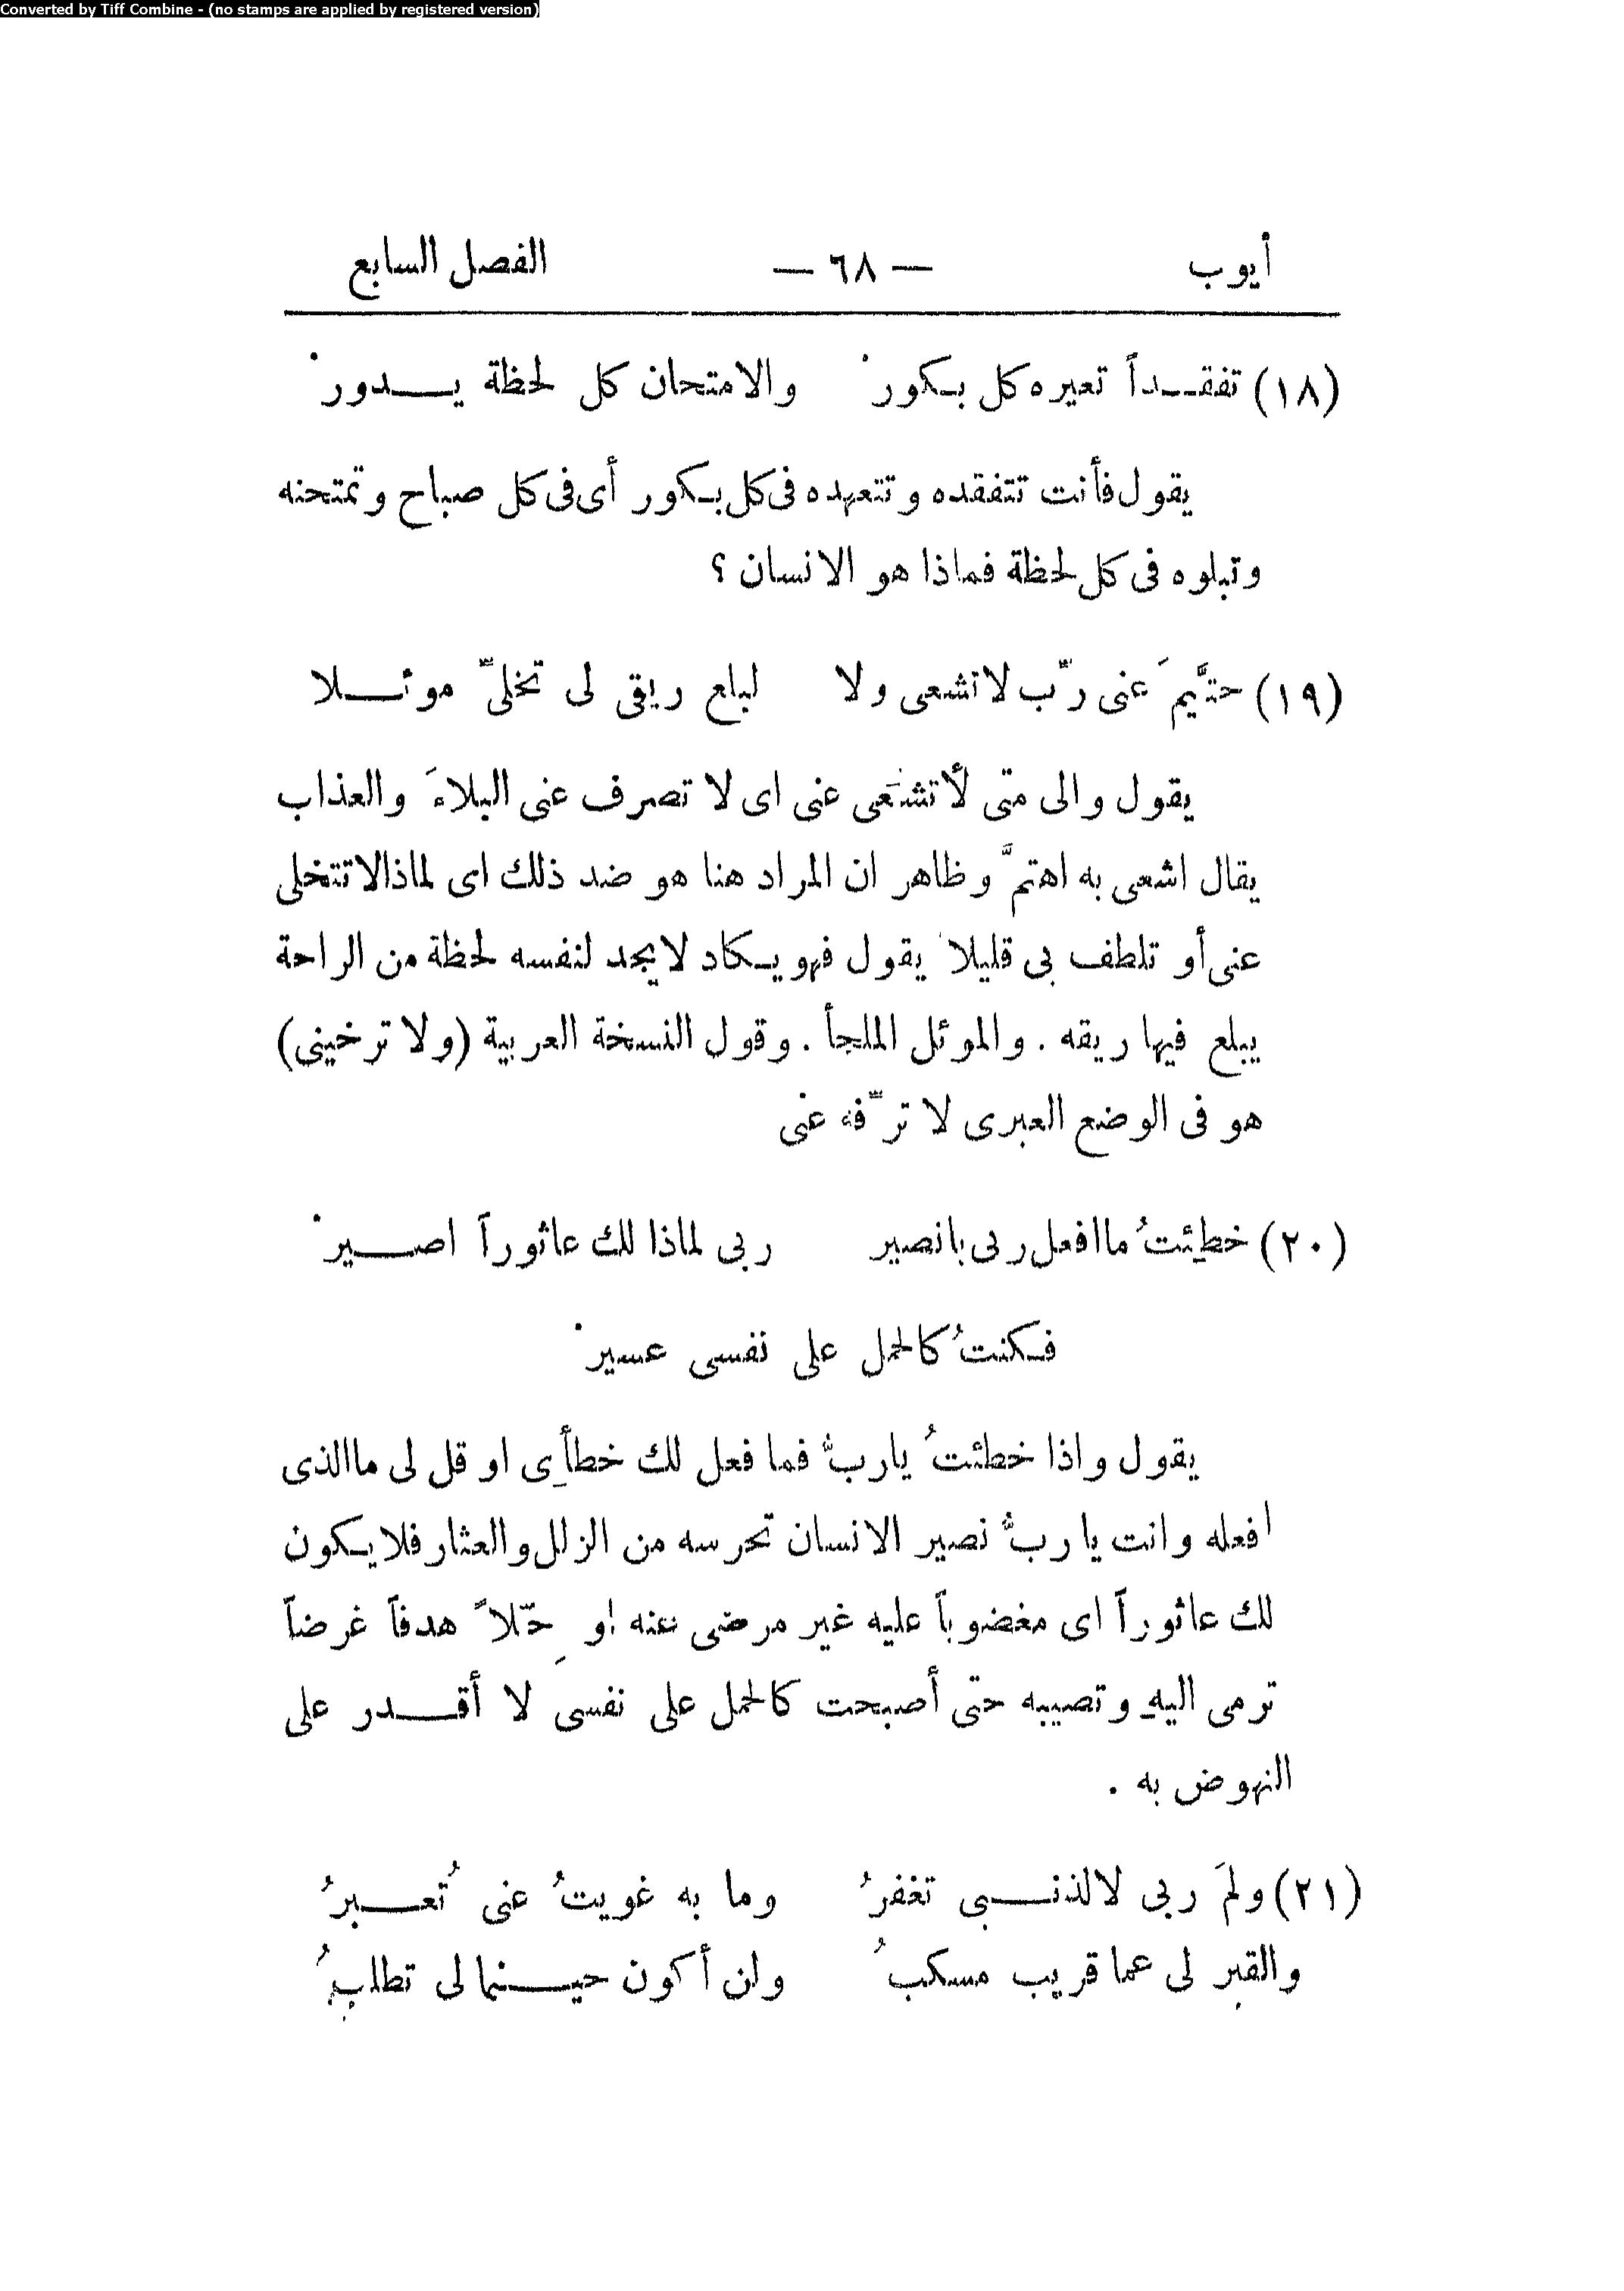 Converted by Tiff Combine - (no stamps are applied by registered version)
أيوب — ٦٨ — الفصل السابع
(١٨) تفقـداً تعيره كل بكور والامتحان كل لحظة يـــدور
يقول فأنت تتفقده وتتعهده فى كل بكور أى فى كل صباح وتمتحنه
وتبلوه فى كل لحظة فماذا هو الانسان ؟
(١٩) حتَّيمَ عنى ربّ لا تشعى ولا لبلع ريقى لى تخلىّ موئـــلا
يقول والى متى لا تشتعى عنى اى لا تصرف عنى البلاءَ والعذاب
يقال اشعى به اهتمَّ وظاهر ان المراد هنا هو ضد ذلك اى لماذا لا تتخلى
عنى أو تلطف بى قليلا يقول فهو يكاد لا يجد لنفسه لحظة من الراحة
يبلع فيها ريقه . والموئل الملجأ . وقول النسخة العربية (ولا ترخينى)
هو فى الوضع العبرى لا ترفّه عنى
(٢٠) خطِئتُ ما افعل ربى يا نصير ربى لماذا لك عاثوراً اصـــير
فكنتُ كالحمل على نفسى عسير
يقول واذا خطئتُ يا ربُّ فما فعل لك خطأِى او قل لى ما الذى
افعله وانت يا ربُّ نصير الانسان تحرسه من الزلل والعثار فلا يكون
لك عاثوراً اى مغضوباً عليه غير مرضى عنه او حِلّاً هدفاً غرضاً
ترمى اليهِ وتصيبه حتى أصبحت كالحمل على نفسى لا أقـــدر على
النهوض به .
(٢١) ولمَ ربى لا لذنـــبى تغفرُ وما به غويتُ عنى تُعـــبرُ
والقبر لى عما قريب مسكبُ ولن أكون حيـــنما لى تطلبُ